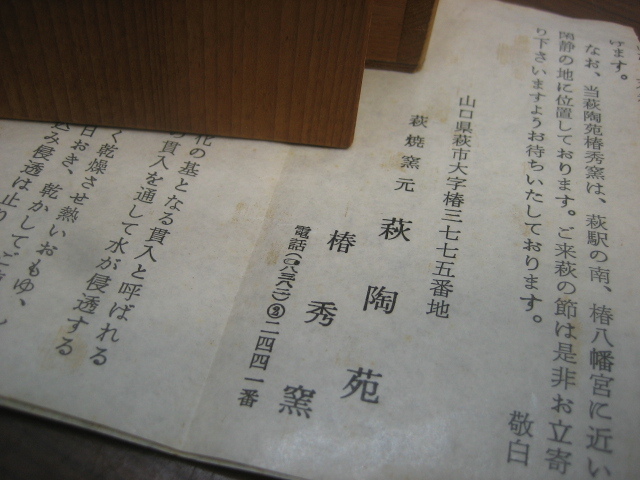 げます。
なお、当萩陶苑椿秀窯は、萩駅の南、椿八幡宮に近い
閑静の地に位置しております。ご来萩の節は是非お立寄
り下さいますようお待ちいたしております。
敬白
山口県萩市大字椿三七七五番地
萩焼窯元 萩陶苑
椿秀窯
電話(〇八三八二)②二四四一番
化の基となる貫入と呼ばれる
の貫入を通して水が浸透する
く乾燥させ熱いおもゆ、
日おき、乾かしてご
込み浸透は止り